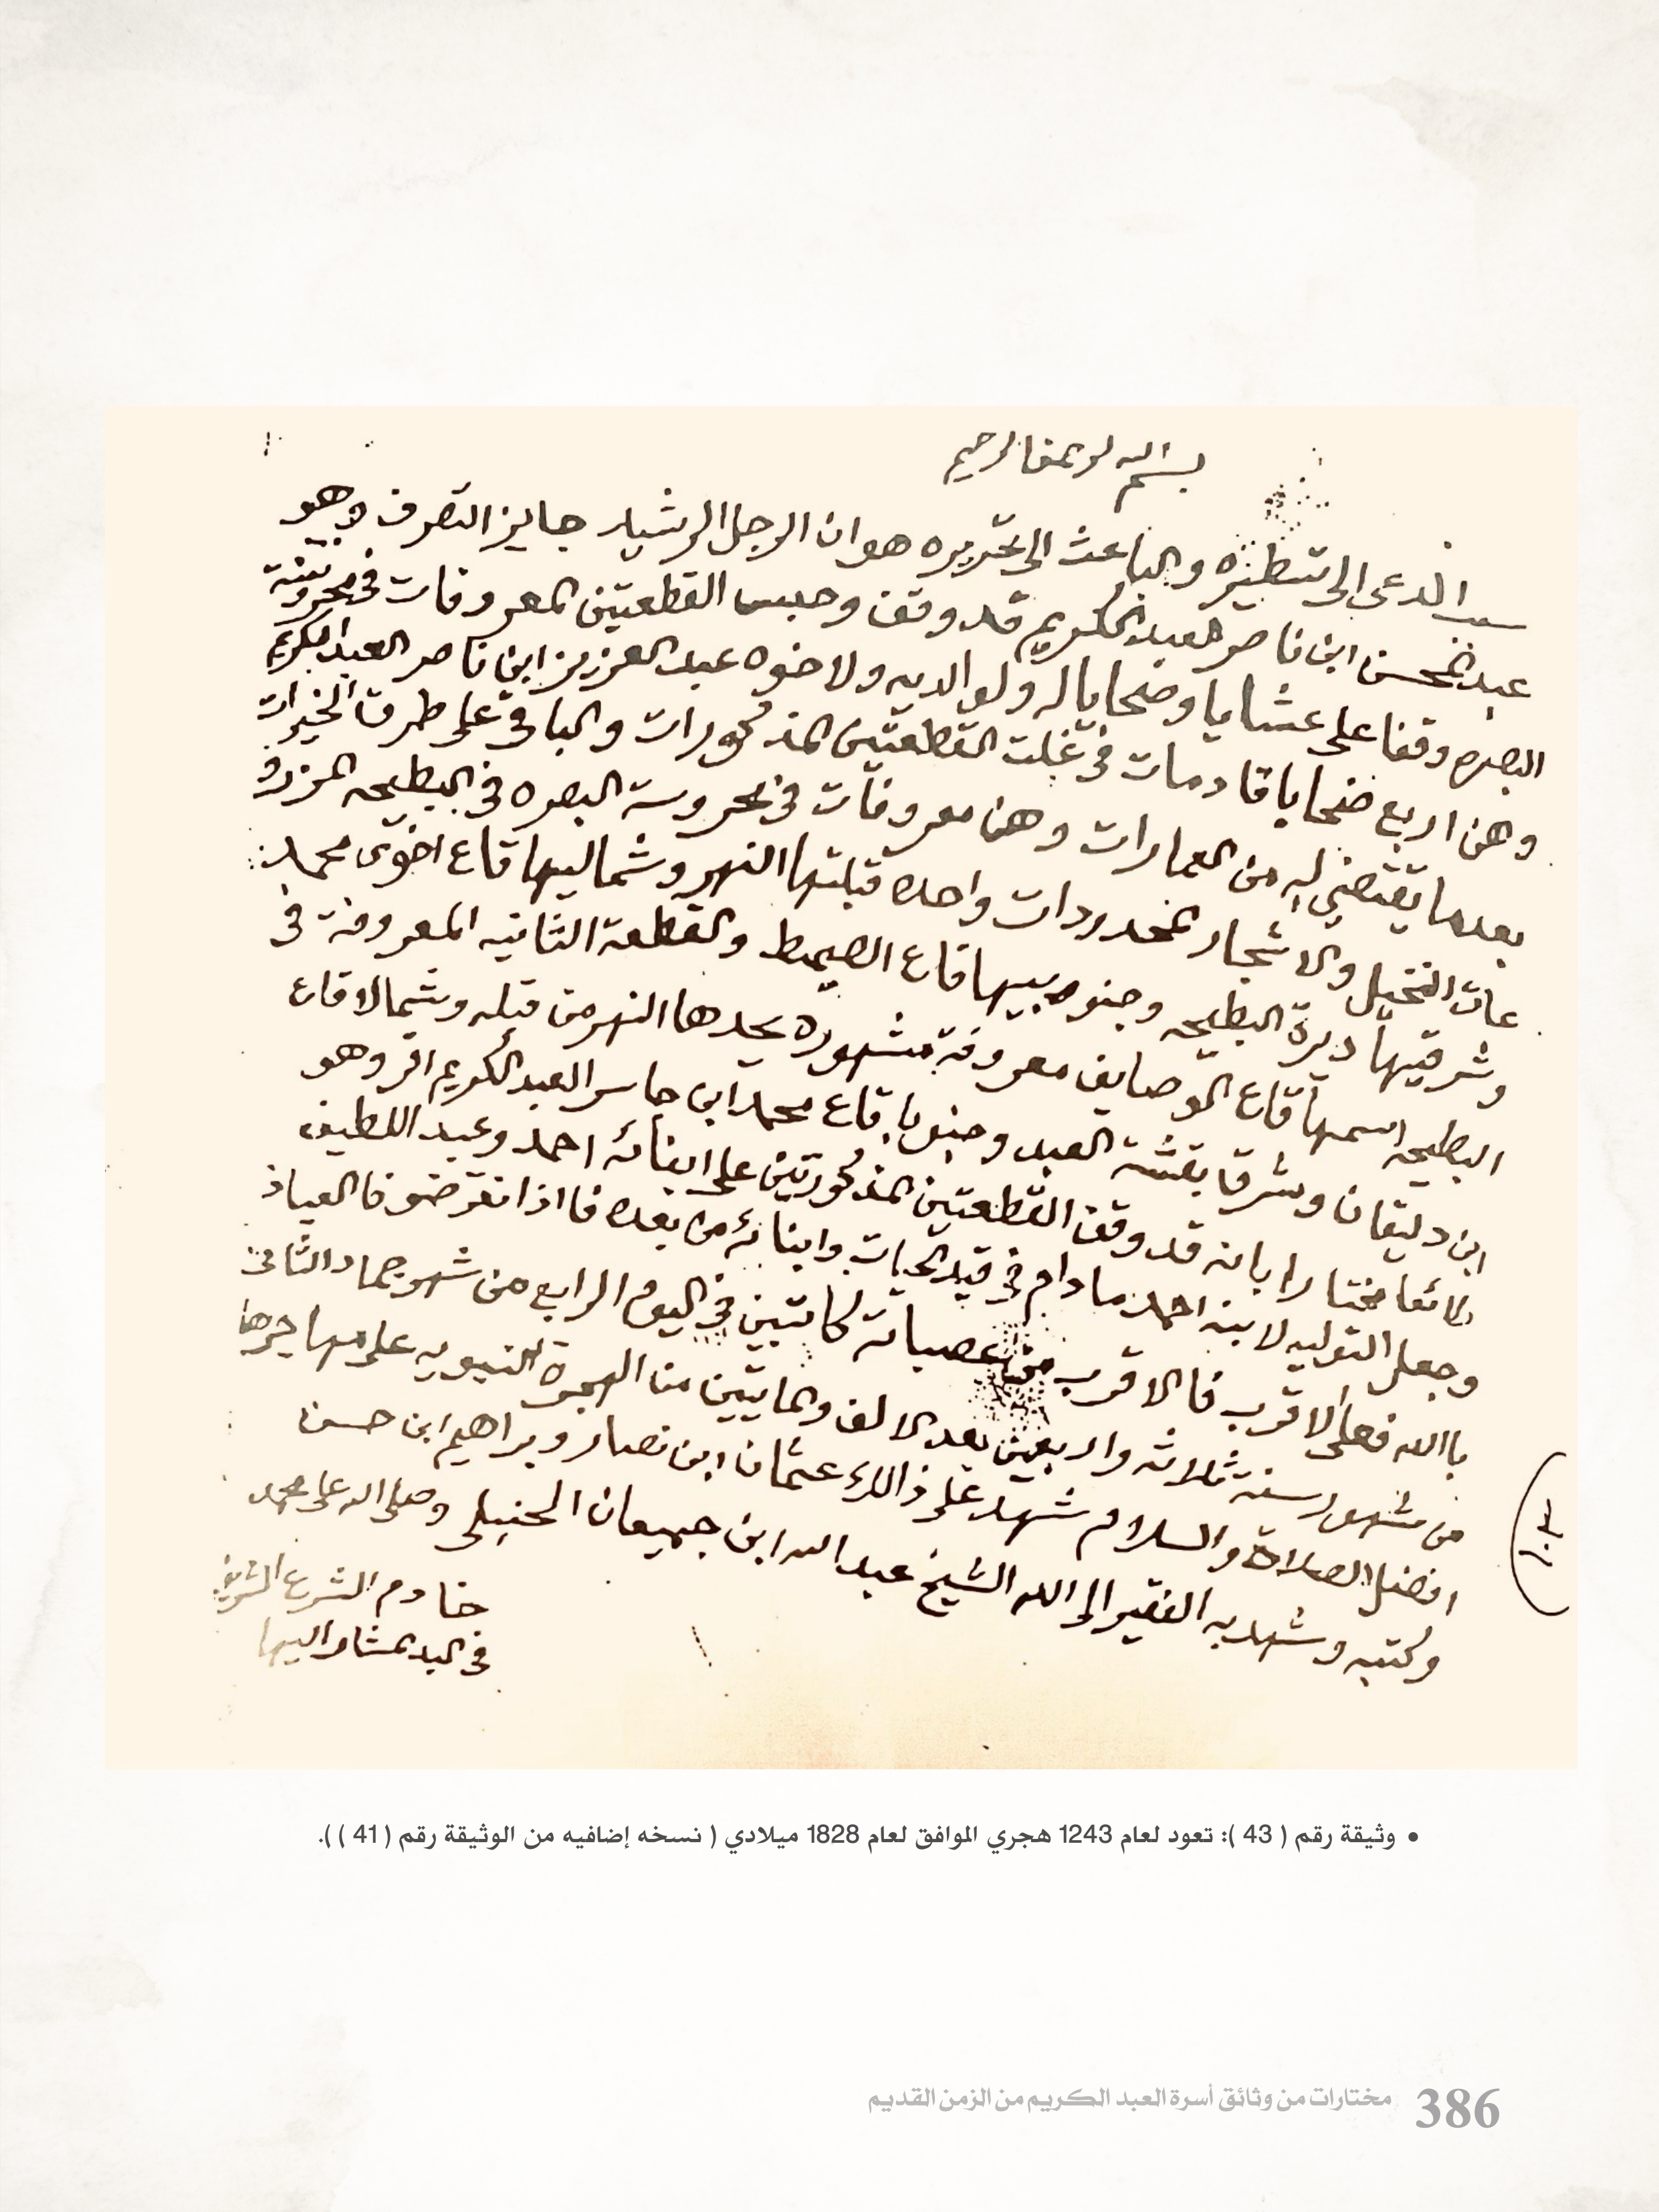 بسم الله الرحمن الرحيم
سبب الداعي الى تسطيره والباعث الى تحريره هو ان الرجل الرشيد جايز التصرف وهو
عبد المحسن ابن ناصر العبد الكريم قد وقف وحبس القطعتين المعروفات في محروسة
البصره وقفا على عشايا وضحايا له ولوالديه ولاخوه عبد العزيز ابن ناصر العبد الكريم
وهن اربع ضحايا قادمات في غلت القطعتين المذكورات والباقي على طرق الخيرات
بعدما يقتضي له من العمارات وهن معروفات في محروسة البصره في البطيحه المزرو
عات النخيل والاشجار المحدودات واحده قبلتها النهر وشماليها قاع اخوي محمد
وشرقيها ديرة البطيحه وجنوبيها قاع الصيمط والقطعة الثانيه المعروفة في
البطيحه اسمها قاع الوصايف معروفة مشهوره يحدها النهر من قبله وشمالا قاع
ابن دليقان وشرقا بقشة العبد وجنوبا قاع محمد ابن جاسر العبد الكريم اقر وهو
طائعا مختارا بانه قد وقف القطعتين المذكورتين على ابنائه احمد وعبد اللطيف
وجعل التوليه لابنه احمد مادام في قيد الحيات وابنائه من بعده فااذا انقرضو فا العياذ
باالله فعلى الاقرب فالاقرب من عصباته كاتبين في اليوم الرابع من شهر جماد الثاني
من شهور سنة ثلاثه واربعين بعد الالف والمايتين من الهجرة النبويه على مهاجرها
افضل الصلاة والسلام شهد على ذالك عثمان ابن نصار وبراهيم ابن حسن
وكتبه وشهد به الفقير الى الله الشيخ عبد الله ابن جميعان الحنبلي وصلى الله على محمد
خادم الشرع الشريف
في البلد المشار اليها
• وثيقة رقم ( 43 ): تعود لعام 1243 هجري الموافق لعام 1828 ميلادي ( نسخه إضافيه من الوثيقة رقم ( 41 ) ).
386 مختارات من وثائق أسرة العبد الكريم من الزمن القديم